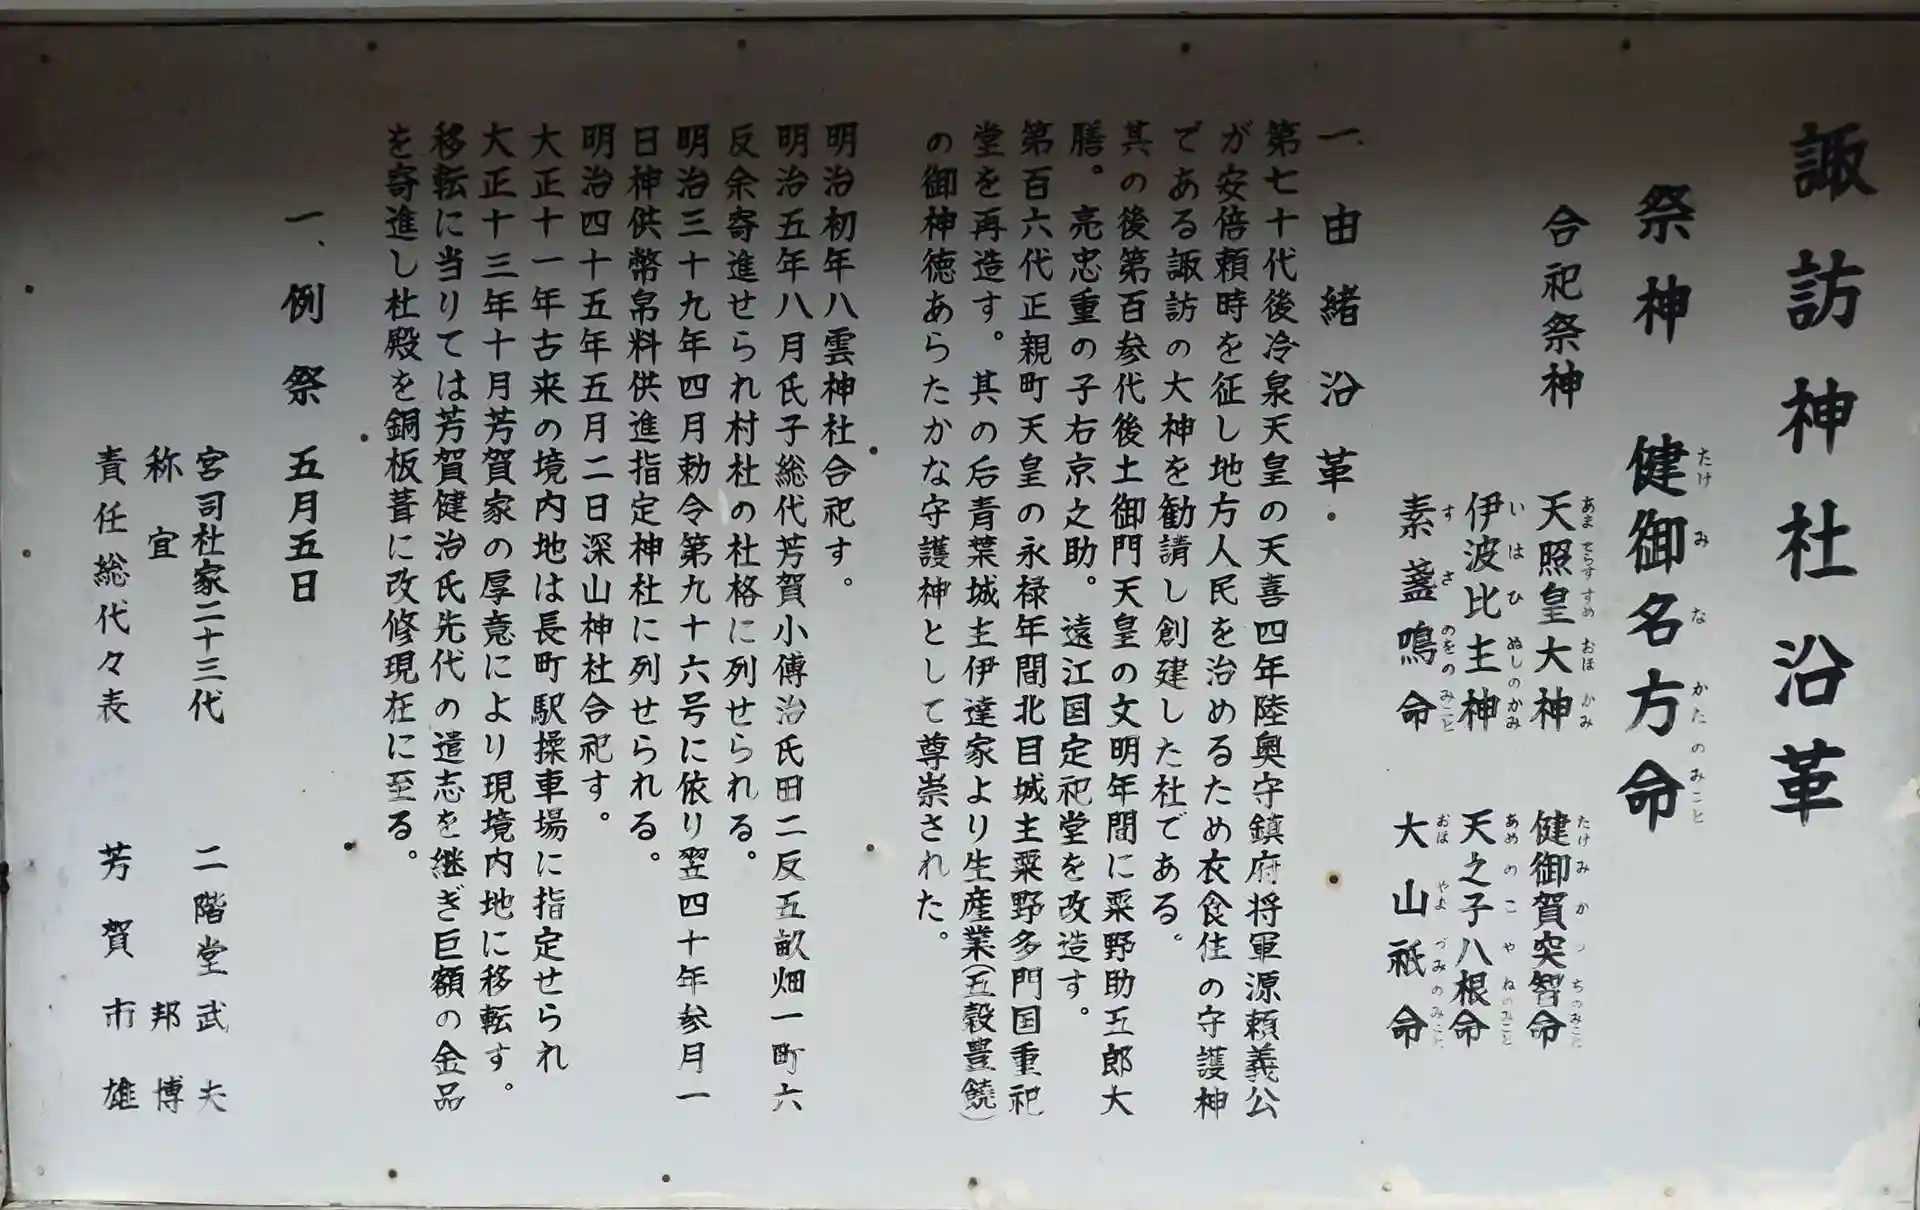 諏訪神社沿革
祭神 健御名方命
たけ み な かたのみこと
合祀祭神
天照皇大神 健御賀突智命
あまてらすすめおほかみ たけみかっちのみこと
伊波比主神 天之子八根命
いはひぬしのかみ あめのこやねのみこと
素盞鳴命 大山祇命
すさのをのみこと おほやまづみのみこと
一、由緒沿革
第七十代後冷泉天皇の天喜四年陸奥守鎮府将軍源頼義公
が安倍頼時を征し地方人民を治めるため衣食住の守護神
である諏訪の大神を勧請し創建した社である。
其の後第百参代後土御門天皇の文明年間に粟野助五郎大
膳。亮忠重の子右京之助。遠江国定祀堂を改造す。
第百六代正親町天皇の永禄年間北目城主粟野多門国重祀
堂を再造す。其の后青葉城主伊達家より生産業(五穀豊饒)
の御神徳あらたかな守護神として尊崇された。
明治初年八雲神社合祀す。
明治五年八月氏子総代芳賀小傳治氏田二反五畝畑一町六
反余寄進せられ村社の社格に列せられる。
明治三十九年四月勅令第九十六号に依り翌四十年参月一
日神供幣帛料供進指定神社に列せられる。
明治四十五年五月二日深山神社合祀す。
大正十一年古来の境内地は長町駅操車場に指定せられ
大正十三年十月芳賀家の厚意により現境内地に移転す。
移転に当りては芳賀健治氏先代の遺志を継ぎ巨額の金品
を寄進し社殿を銅板葺に改修現在に至る。
一、例祭 五月五日
宮司社家二十三代 二階堂武夫
称宜 邦博
責任総代々表 芳賀市雄